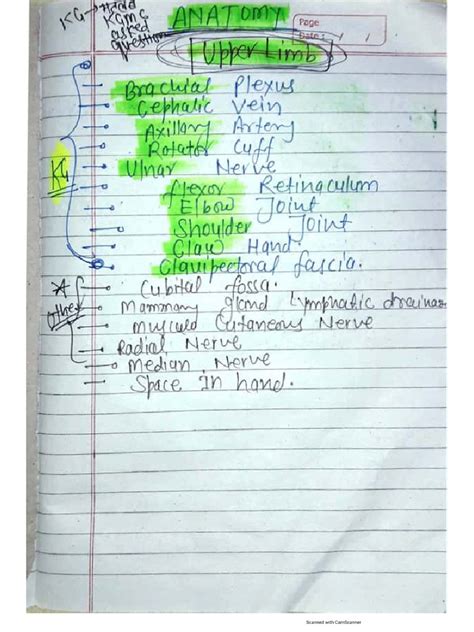 KG → 
KGMC
asked
question
ANATOMY
Page
Date : / /
Upper Limb
Brachial Plexus
Cephalic Vein
Axillary Artery
Rotator Cuff
Ulnar Nerve
flexor Retinaculum
Elbow Joint
Shoulder Joint
Claw Hand.
Clavipectoral fascia.
KG
Cubital fossa.
Mammary gland Lymphatic drainage
Musculo Cutaneous Nerve
Radial Nerve
Median Nerve
Space in hand.
other
Scanned with CamScanner